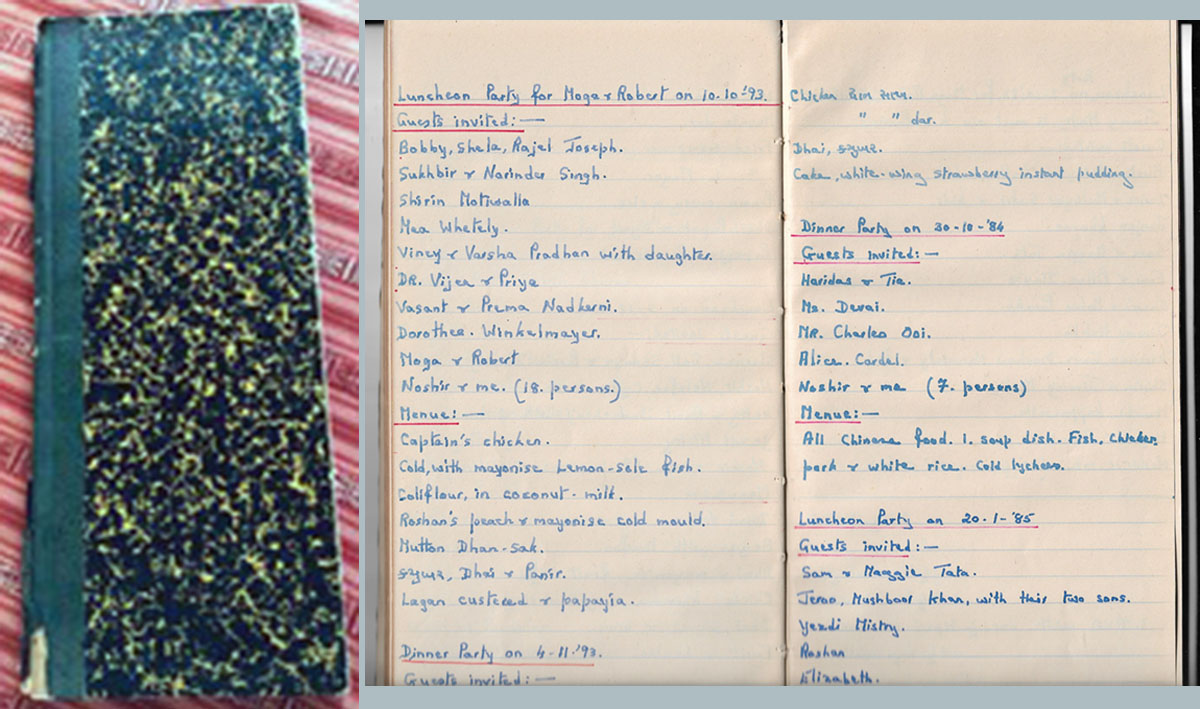 Luncheon Party for Moga & Robert on 10-10-'93.
Guests invited:—
Bobby, Shela, Rajel Joseph.
Sukhbir & Narinder Singh.
Shirin Motiwalla
Mea Whetely.
Viney & Varsha Pradhan with daughter.
DR. Vijea & Priya
Vasant & Prema Nadkerni.
Dorothea. Winkelmayer.
Moga & Robert
Noshir & me. (18. persons.)
Menue:—
Captain's chicken.
Cold, with mayonise Lemon-sole fish.
Coliflour, in coconut-milk.
Roshan's peach & mayonise cold mould.
Mutton Dhan-sak.
કચુમર, Dhai & Panir.
Lagan custered & papayia.
Dinner Party on 4-11-'93.
Guests invited:—
Chicken
" " dar.
Dhai, કચુમર.
Cake, white-wing strawberry instant pudding.
Dinner Party on 30-10-'84
Guests invited:—
Haridas & Tia.
Ms. Devai.
MR. Charles Ooi.
Alice. Cordel.
Noshir & me (7. persons)
Menue:—
All Chinese food. 1. soup dish. Fish, Chicken,
pork & white rice. Cold lychees.
Luncheon Party on 20-1-'85
Guests invited:—
Sam & Maggie Tata.
Jeroo, Mushboor Khan, with their two sons.
Yezdi Mistry.
Roshan
Elizabeth.